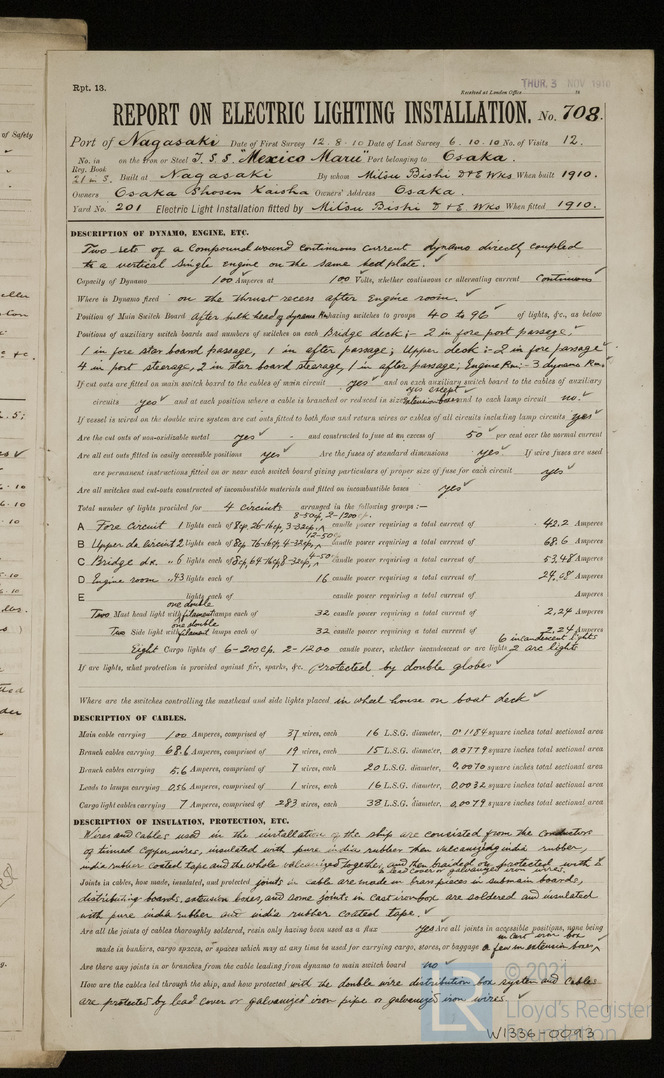 of Safety
Rpt. 13.
THUR. 3 NOV 1910
Received at London Office
REPORT ON ELECTRIC LIGHTING INSTALLATION. No. 708.
Port of Nagasaki Date of First Survey 12.8.10 Date of Last Survey 6.10.10 No. of Visits 12.
No. in Reg. Book on the Iron or Steel T.S.S. "Mexico Maru" Port belonging to Osaka.
21 in S. Built at Nagasaki By whom Mitsu Bishi D&E Wks. When built 1910.
Owners Osaka Shosen Kaisha Owners' Address Osaka.
Yard No. 201 Electric Light Installation fitted by Mitsu Bishi D&E Wks When fitted 1910.
DESCRIPTION OF DYNAMO, ENGINE, ETC.
Two sets of a compound wound continuous current dynamo directly coupled
to a vertical single engine on the same bed plate.
Capacity of Dynamo 100 Amperes at 100 Volts, whether continuous or alternating current Continuous
Where is Dynamo fixed on the thrust recess after Engine room.
Position of Main Switch Board After bulk head of dynamo Rm having switches to groups 40 to 96 of lights, &c., as below
Positions of auxiliary switch boards and numbers of switches on each Bridge deck;- 2 in fore port passage,
1 in fore star board passage, 1 in after passage; Upper deck;- 2 in fore passage
4 in port steerage, 2 in star board steerage, 1 in after passage; Engine Rm:- 3 dynamo Rm.
If cut outs are fitted on main switch board to the cables of main circuit yes and on each auxiliary switch board to the cables of auxiliary
circuits yes and at each position where a cable is branched or reduced in size yes except extension boxes and to each lamp circuit no.
If vessel is wired on the double wire system are cut outs fitted to both flow and return wires or cables of all circuits including lamp circuits yes
Are the cut outs of non-oxidizable metal yes and constructed to fuse at an excess of 50 per cent over the normal current
Are all cut outs fitted in easily accessible positions yes Are the fuses of standard dimensions yes. If wire fuses are used
are permanent instructions fitted on or near each switch board giving particulars of proper size of fuse for each circuit yes
Are all switches and cut-outs constructed of incombustible materials and fitted on incombustible bases yes
Total number of lights provided for 4 Circuits arranged in the following groups :—
8-50cp, 2-1200cp.
A Fore Circuit 1 lights each of 8cp, 26-16cp, 3-32cp, candle power requiring a total current of 42.2 Amperes
12-50cp
B Upper dk Circuit 2 lights each of 8cp 76-16cp, 4-32cp, candle power requiring a total current of 68.6 Amperes
4-50cp
C Bridge dk. " 6 lights each of 8cp, 64-16cp, 8-32cp, candle power requiring a total current of 53.48 Amperes
D Engine room " 43 lights each of 16 candle power requiring a total current of 24.08 Amperes
E lights each of candle power requiring a total current of Amperes
Two Mast head light with one double filament lamps each of 32 candle power requiring a total current of 2.24 Amperes
Two Side light with one double filament lamps each of 32 candle power requiring a total current of 2.24 Amperes
Eight Cargo lights of 6-200cp. 2-1200 candle power, whether incandescent or arc lights 6 incandescent lights 2 arc lights
If arc lights, what protection is provided against fire, sparks, &c. Protected by double globes
Where are the switches controlling the masthead and side lights placed in wheel house on boat deck
DESCRIPTION OF CABLES.
Main cable carrying 100 Amperes, comprised of 37 wires, each 16 L.S.G. diameter, 0.1184 square inches total sectional area
Branch cables carrying 68.6 Amperes, comprised of 19 wires, each 15 L.S.G. diameter, 0.0779 square inches total sectional area
Branch cables carrying 5.6 Amperes, comprised of 7 wires, each 20 L.S.G. diameter, 0.0070 square inches total sectional area
Leads to lamps carrying 0.56 Amperes, comprised of 1 wires, each 16 L.S.G. diameter, 0.0032 square inches total sectional area
Cargo light cables carrying 7 Amperes, comprised of 283 wires, each 38 L.S.G. diameter, 0.0079 square inches total sectional area
DESCRIPTION OF INSULATION, PROTECTION, ETC.
Wires and cables used in the installation of the ship are consisted from the conductors
of tinned copper wires, insulated with pure india rubber then vulcanizing india rubber,
india rubber coated tape and the whole vulcanized together, and then braided or protected with
lead cover or galvanized iron wires.
Joints in cables, how made, insulated, and protected joints in cable are made in brass pieces in submain boards,
distributing boards, extension boxes, and some joints in cast iron box are soldered and insulated
with pure india rubber and india rubber coated tape.
Are all the joints of cables thoroughly soldered, resin only having been used as a flux yes Are all joints in accessible positions, none being
made in bunkers, cargo spaces, or spaces which may at any time be used for carrying cargo, stores, or baggage a few in extension boxes in cast iron box
Are there any joints in or branches from the cable leading from dynamo to main switch board no
How are the cables led through the ship, and how protected with the double wire distribution box system and cables
are protected by lead cover or galvanized iron pipe or galvanized iron wires.
© 2021
Lloyd's Register
Foundation
W1336-0093